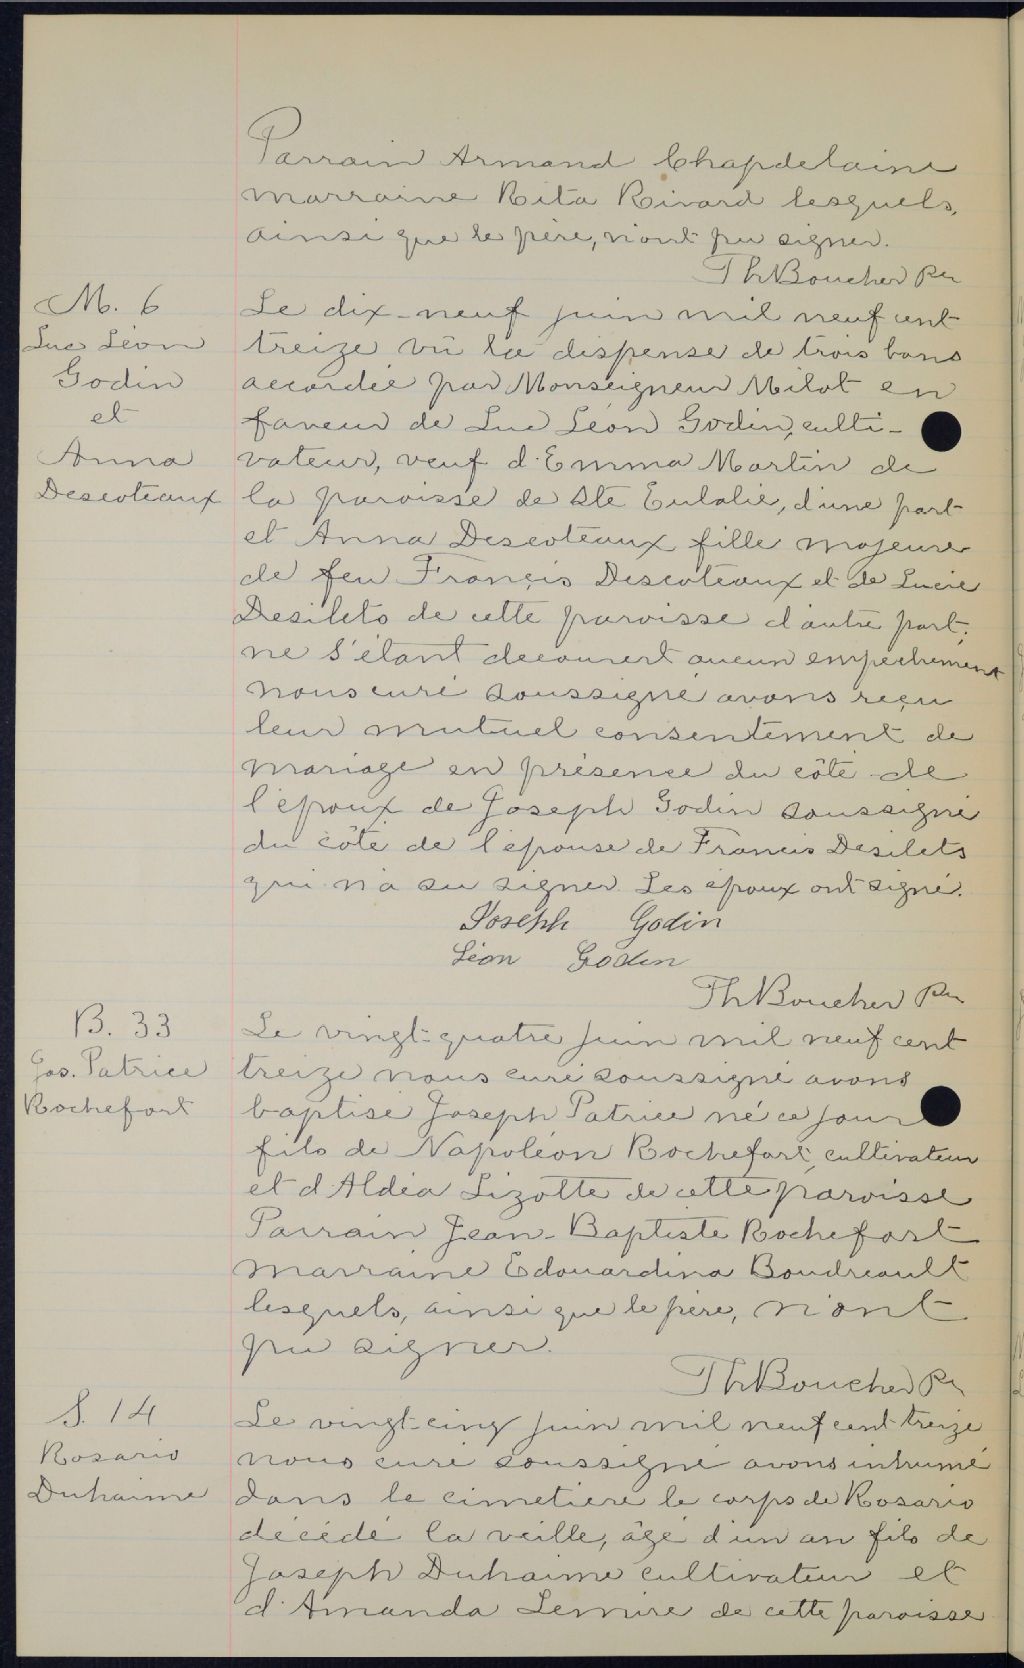 Parrain Armand Chapdelaine
marraine Rita Rivard lesquels,
ainsi que le père, n'ont pu signer.
Th Boucher Ptr
M. 6
Luc Léon
Godin
et
Anna
Descoteaux
Le dix-neuf juin mil neuf cent
treize vû la dispense de trois bans
accordée par Monseigneur Milot en
faveur de Luc Léon Godin, culti-
vateur, veuf d'Emma Martin de
la paroisse de Ste Eulalie, d'une part
et Anna Descoteaux fille majeure
de feu Françis Descoteaux et de Lucie
Desilets de cette paroisse d'autre part;
ne s'étant decouvert aucun empechement
nous curé soussigné avons reçu
leur mutuel consentement de
mariage en présence du côté de
l'époux de Joseph Godin soussigné
du côté de l'épouse de Francis Desilets
qui n'a su signer. Les époux ont signé.
Joseph Godin
Léon Godin
Th Boucher Ptr
B. 33
Jos. Patrice
Rochefort
Le vingt-quatre juin mil neuf cent
treize nous curé soussigné avons
baptisé Joseph Patrice né ce jour
fils de Napoléon Rochefort, cultivateur
et d'Aldéa Lizotte de cette paroisse
Parrain Jean-Baptiste Rochefort
marraine Edouardina Boudreault
lesquels, ainsi que le père, n'ont
pu signer.
Th Boucher Ptr
S. 14
Rosario
Duhaime
Le vingt-cinq juin mil neuf cent treize
nous curé soussigné avons inhumé
dans le cimetière le corps de Rosario
décédé la veille, âgé d'un an fils de
Joseph Duhaime cultivateur et
d'Amanda Lemire de cette paroisse